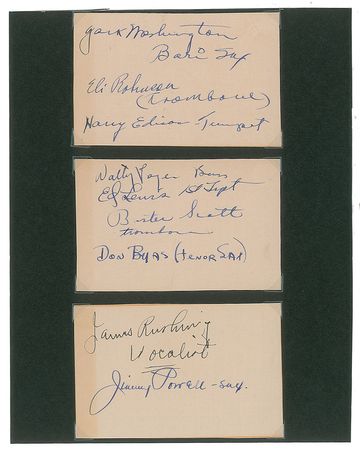 Jack Washington
Bari Sax
Eli Robinson
(Trombone)
Harry Edison - Trumpet
Walter Page Bass
Ed Lewis 1st Tpt
Buster Scott
trombone
DON BYAS (TENOR SAX)
James Rushing
Vocalist
Jimmy Powell - sax.